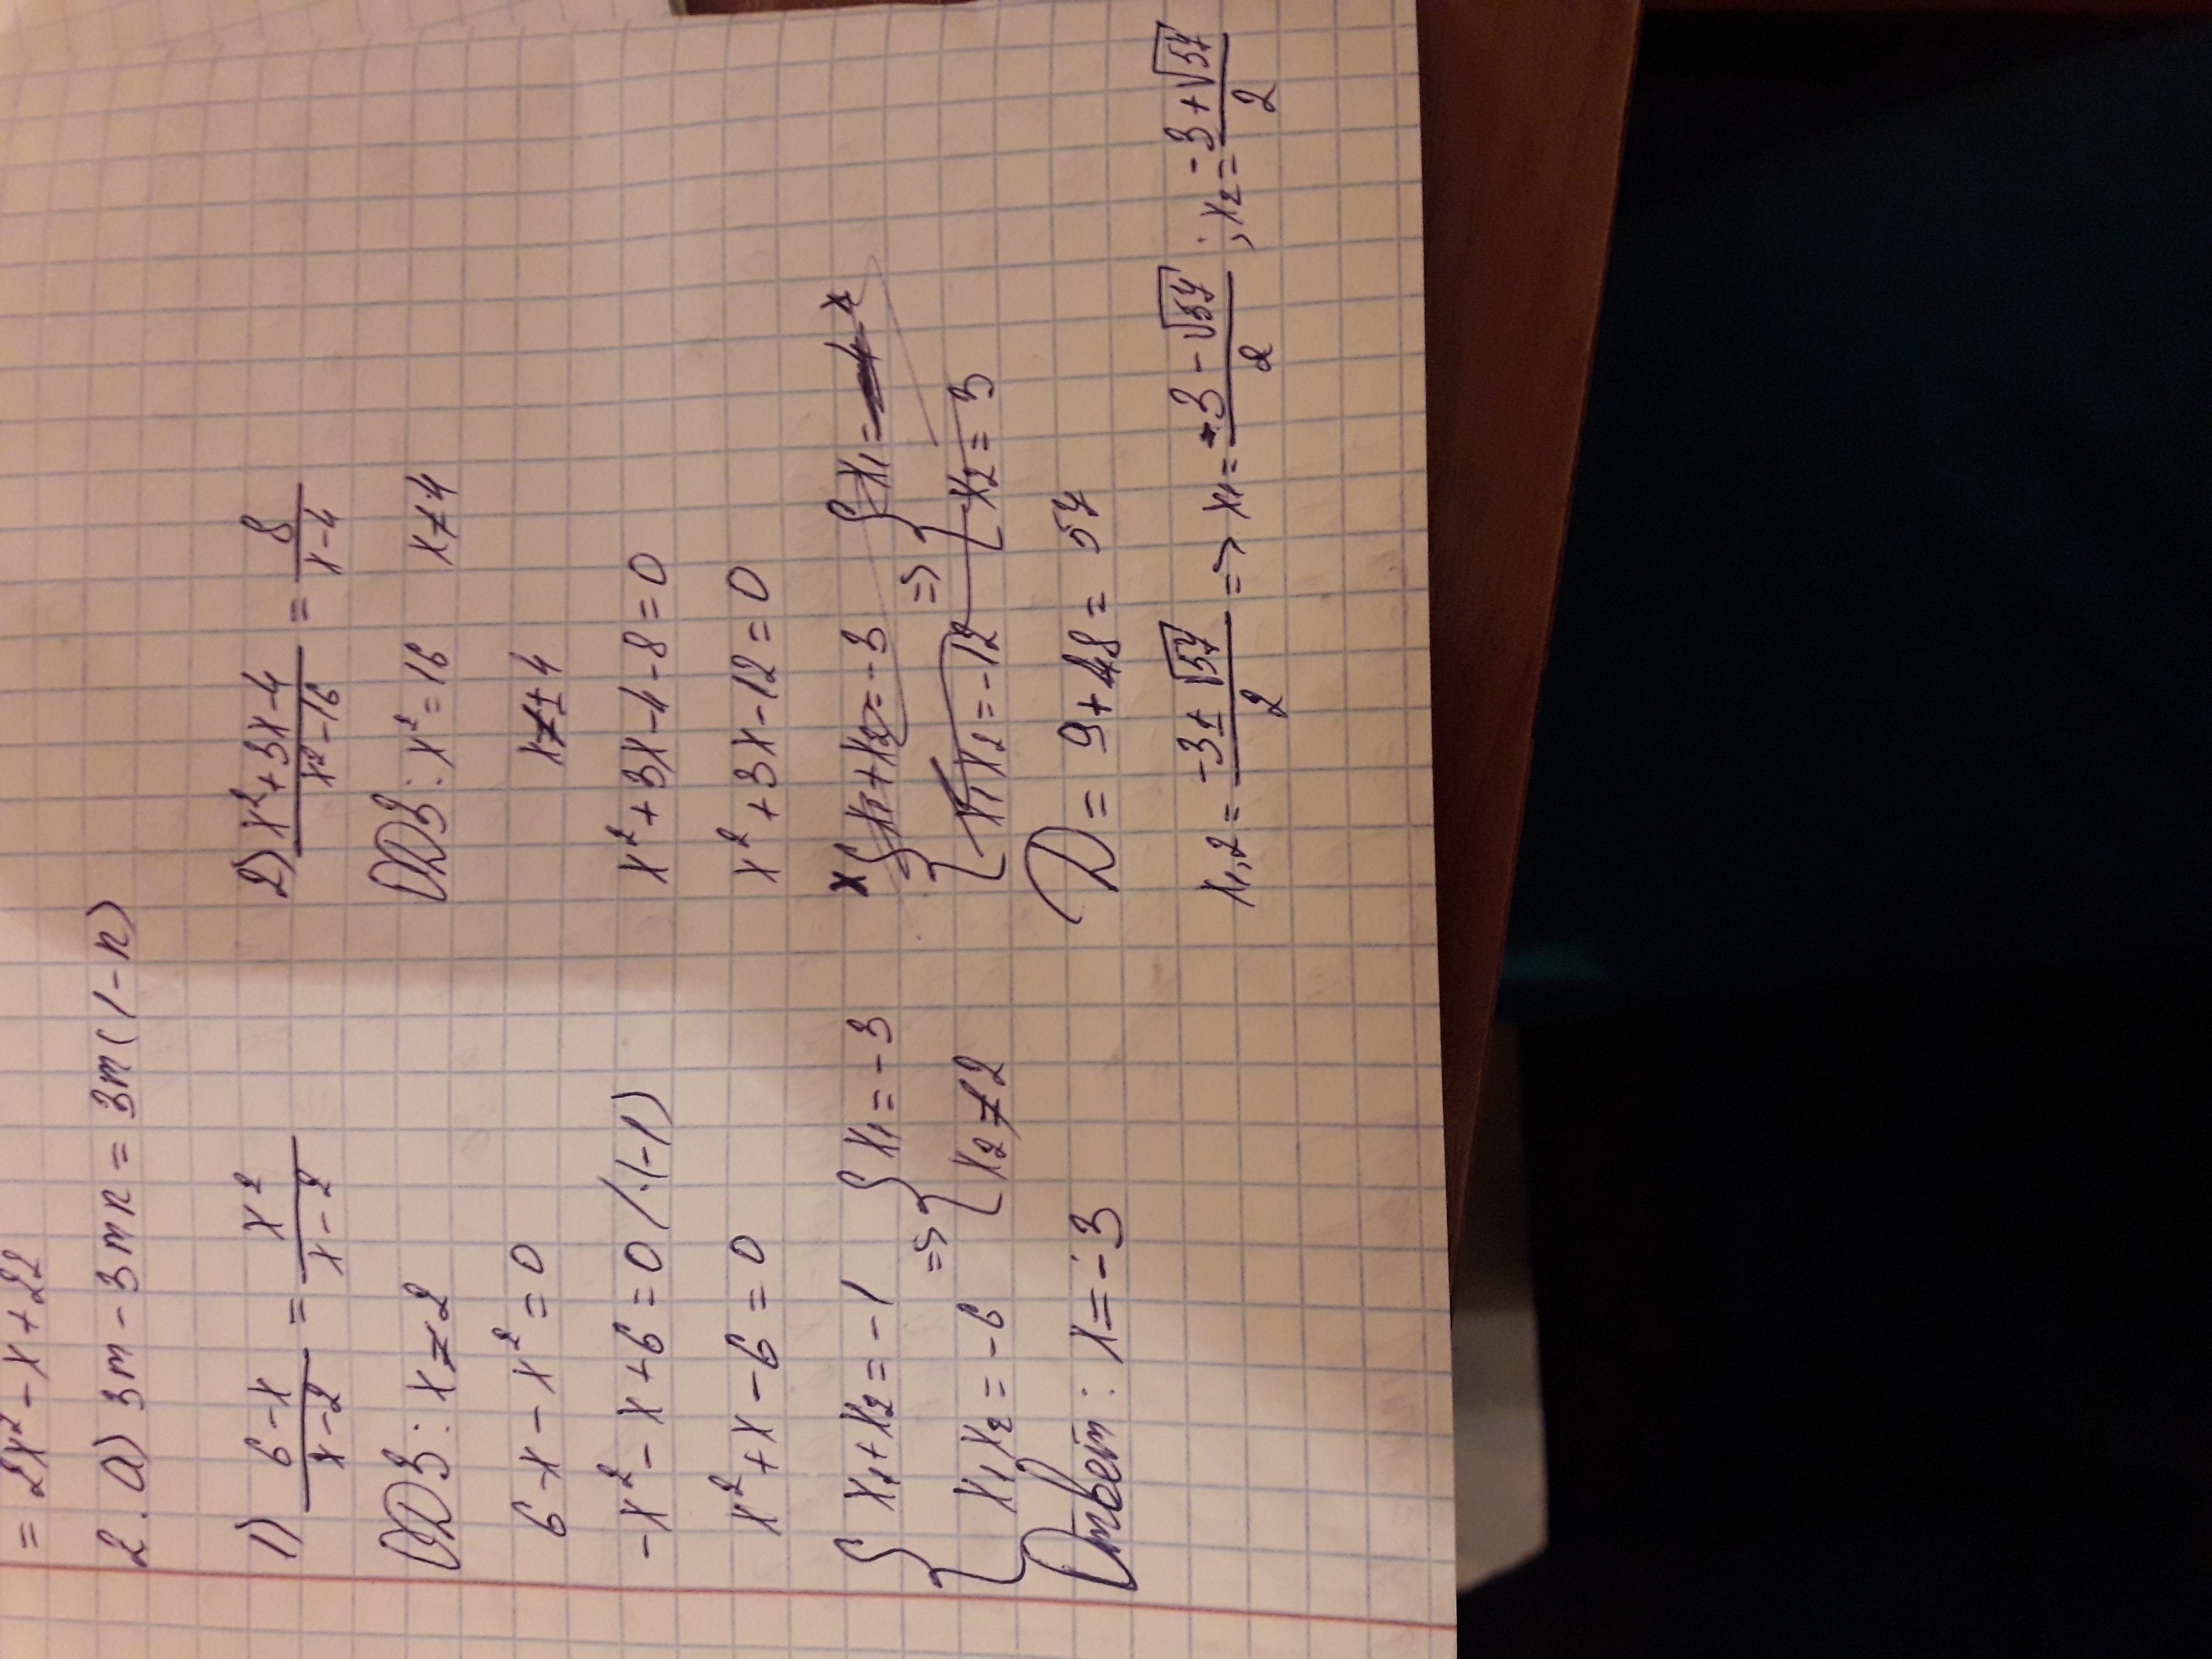 = 2x² - x + 22
2. а) 3m - 3mn = 3m(1-n)
1) (6-x)/(x-2) = x²/(x-2)
ОДЗ: x ≠ 2
6 - x - x² = 0
-x² - x + 6 = 0 /·(-1)
x² + x - 6 = 0
{ x₁ + x₂ = -1
x₁x₂ = -6 => { x₁ = -3
x₂ ≠ 2
Ответ: x = -3
2) (x² + 3x - 4)/(x² - 16) = 8/(x-4)
ОДЗ: x² = 16 x ≠ 4
x ≠ ± 4
x² + 3x - 4 - 8 = 0
x² + 3x - 12 = 0
{ x₁ + x₂ = -3
x₁x₂ = -12 => { x₁ =
x₂ = 3
D = 9 + 48 = 57
x₁,₂ = (-3 ± √57)/2 => x₁ = (-3 - √57)/2 ; x₂ = (-3 + √57)/2